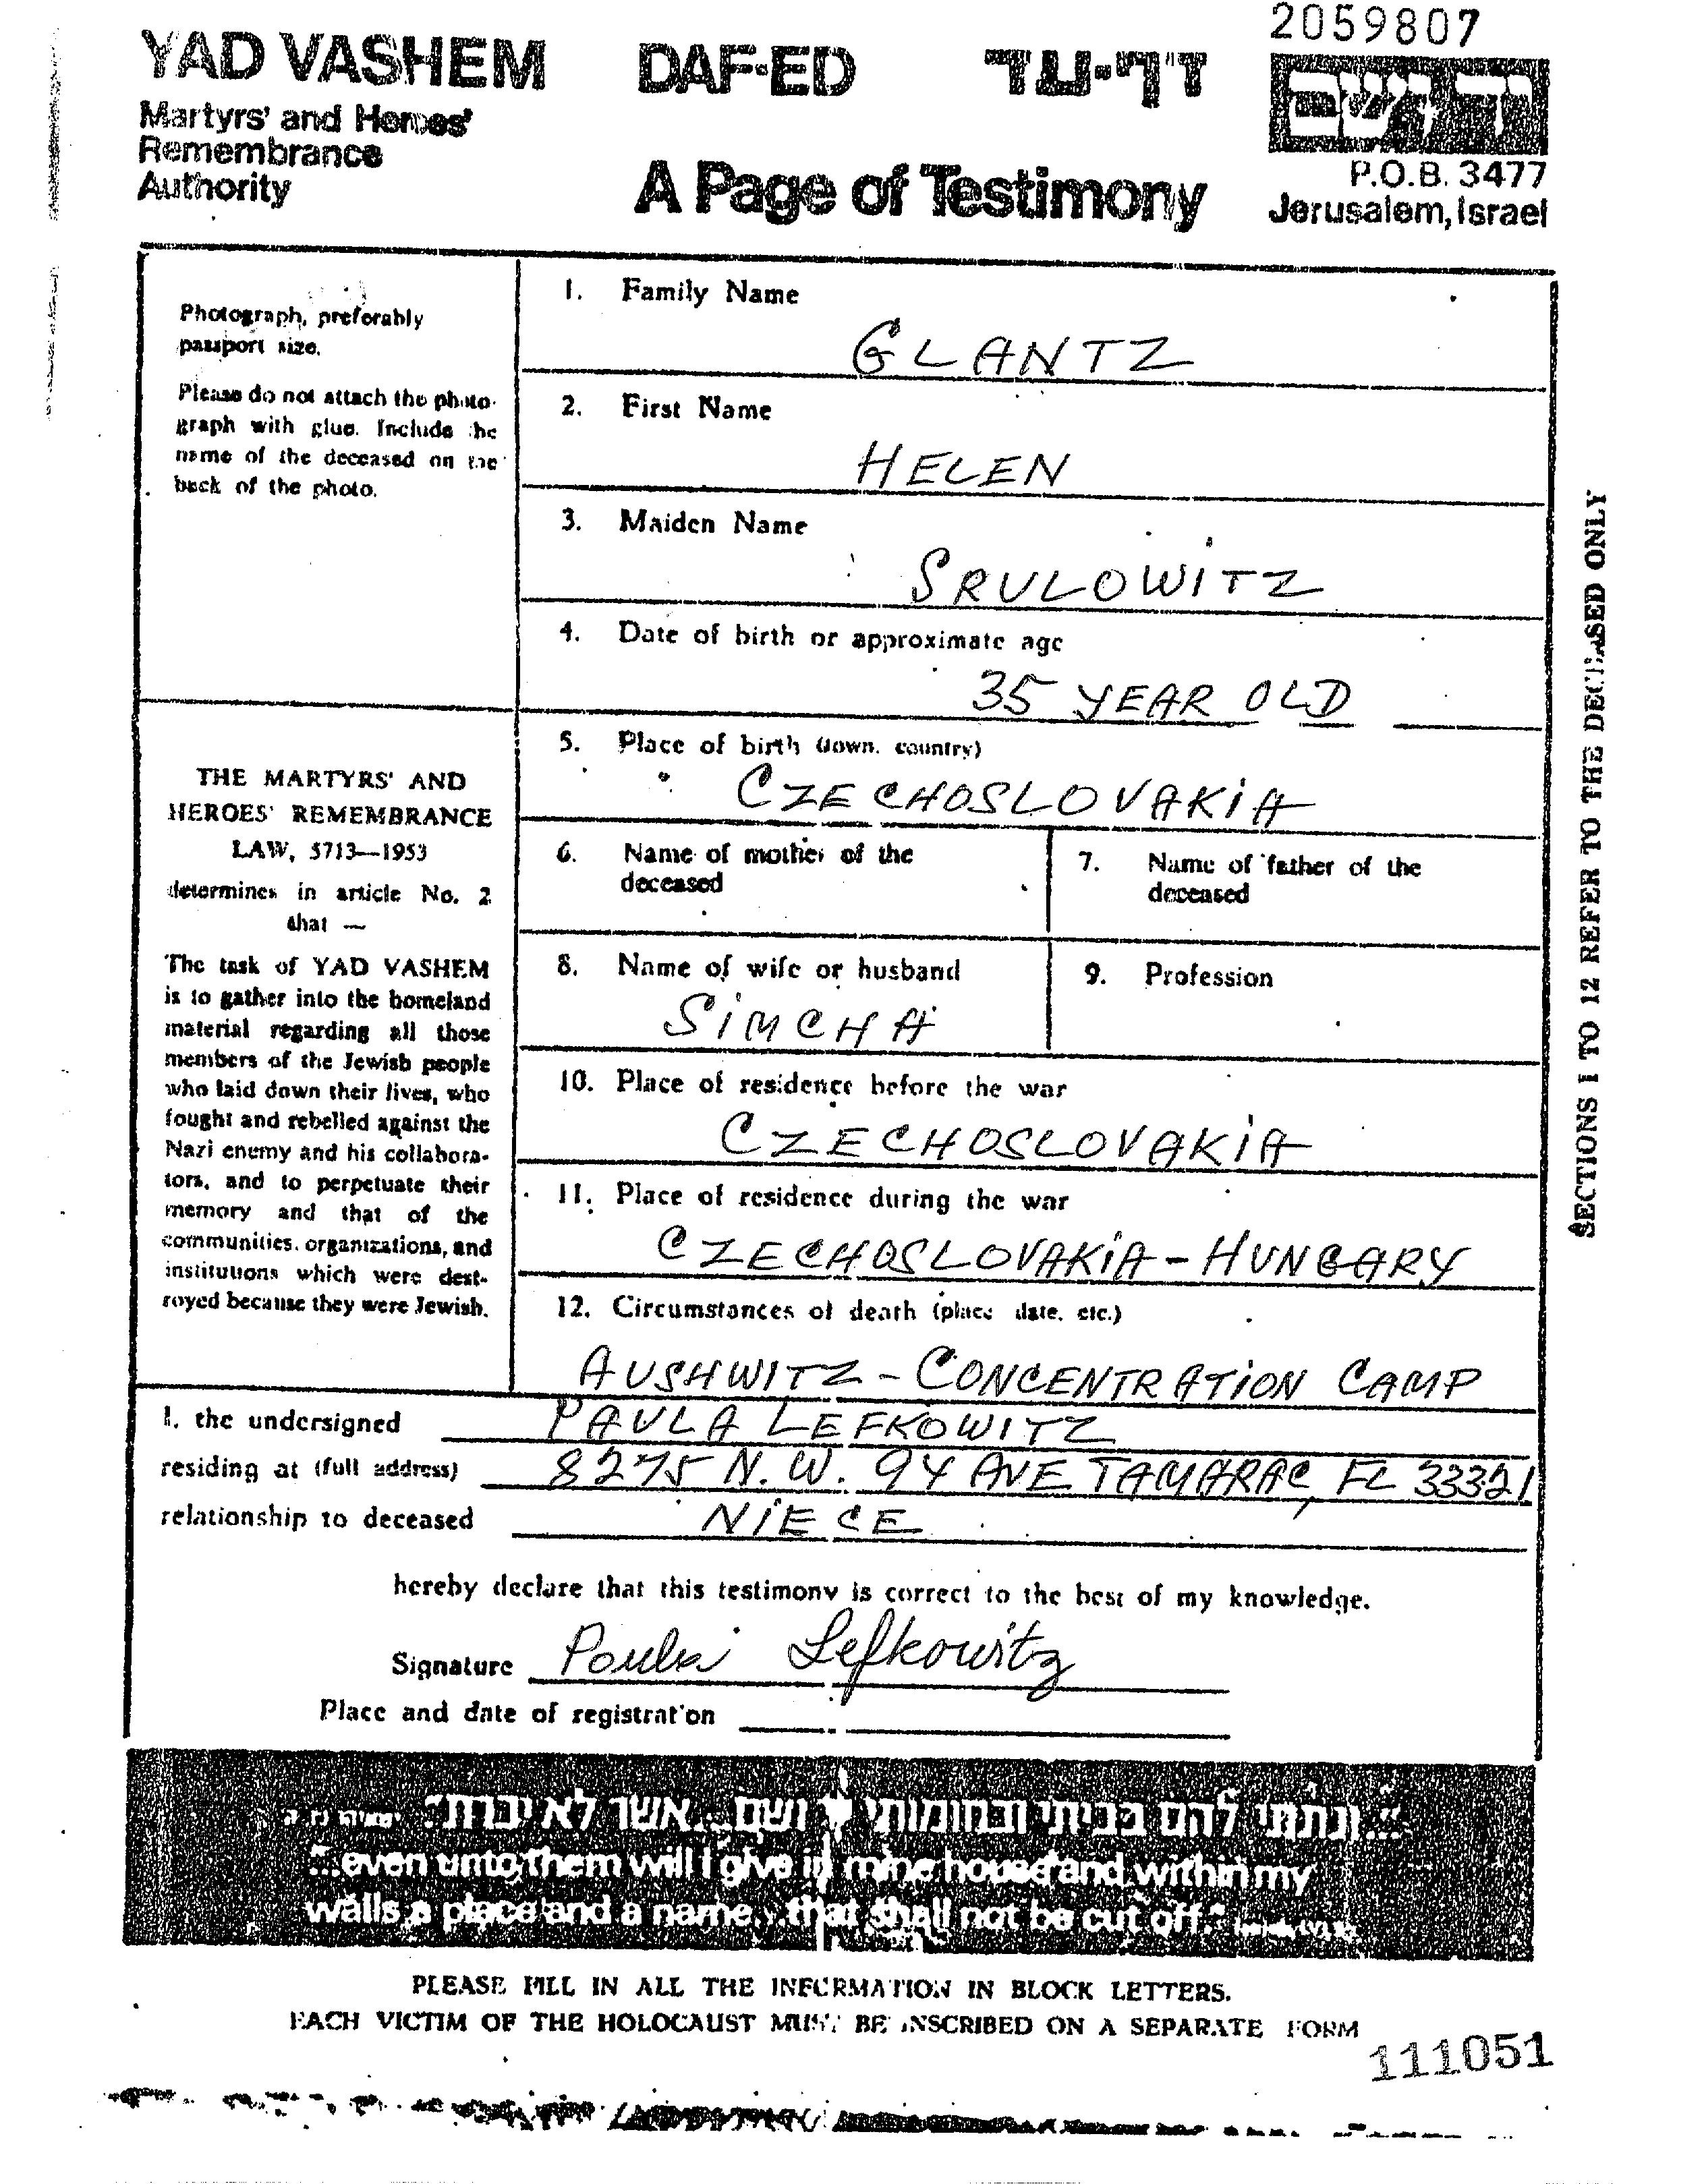 2059807
YAD VASHEM DAF-ED דף-עד
Martyrs' and Heroes'
Remembrance
Authority
A Page of Testimony
P.O.B. 3477
Jerusalem, Israel
Photograph, preferably
passport size.
Please do not attach the photo-
graph with glue. Include the
name of the deceased on the
back of the photo.
THE MARTYRS' AND
HEROES' REMEMBRANCE
LAW, 5713—1953
determines in article No. 2
that —
The task of YAD VASHEM
is to gather into the homeland
material regarding all those
members of the Jewish people
who laid down their lives, who
fought and rebelled against the
Nazi enemy and his collabora-
tors, and to perpetuate their
memory and that of the
communities, organizations, and
institutions which were dest-
royed because they were Jewish.
1. Family Name
GLANTZ
2. First Name
HELEN
3. Maiden Name
SRULOWITZ
4. Date of birth or approximate age
35 YEAR OLD
5. Place of birth (town, country)
CZECHOSLOVAKIA
6. Name of mother of the
deceased
7. Name of father of the
deceased
8. Name of wife or husband
SIMCHA
9. Profession
10. Place of residence before the war
CZECHOSLOVAKIA
11. Place of residence during the war
CZECHOSLOVAKIA - HUNGARY
12. Circumstances of death (place, date, etc.)
AUSHWITZ - CONCENTRATION CAMP
SECTIONS 1 TO 12 REFER TO THE DECEASED ONLY
I, the undersigned PAULA LEFKOWITZ
residing at (full address) 8275 N.W. 94 AVE TAMARAC, FL 33321
relationship to deceased NIECE
hereby declare that this testimony is correct to the best of my knowledge.
Signature Paula Lefkowitz
Place and date of registration
"...ונתתי להם בביתי ובחומותי יד ושם... אשר לא יכרת"
"...even unto them will I give in mine house and within my
walls a place and a name... that shall not be cut off."
PLEASE FILL IN ALL THE INFORMATION IN BLOCK LETTERS.
EACH VICTIM OF THE HOLOCAUST MUST BE INSCRIBED ON A SEPARATE FORM
111051